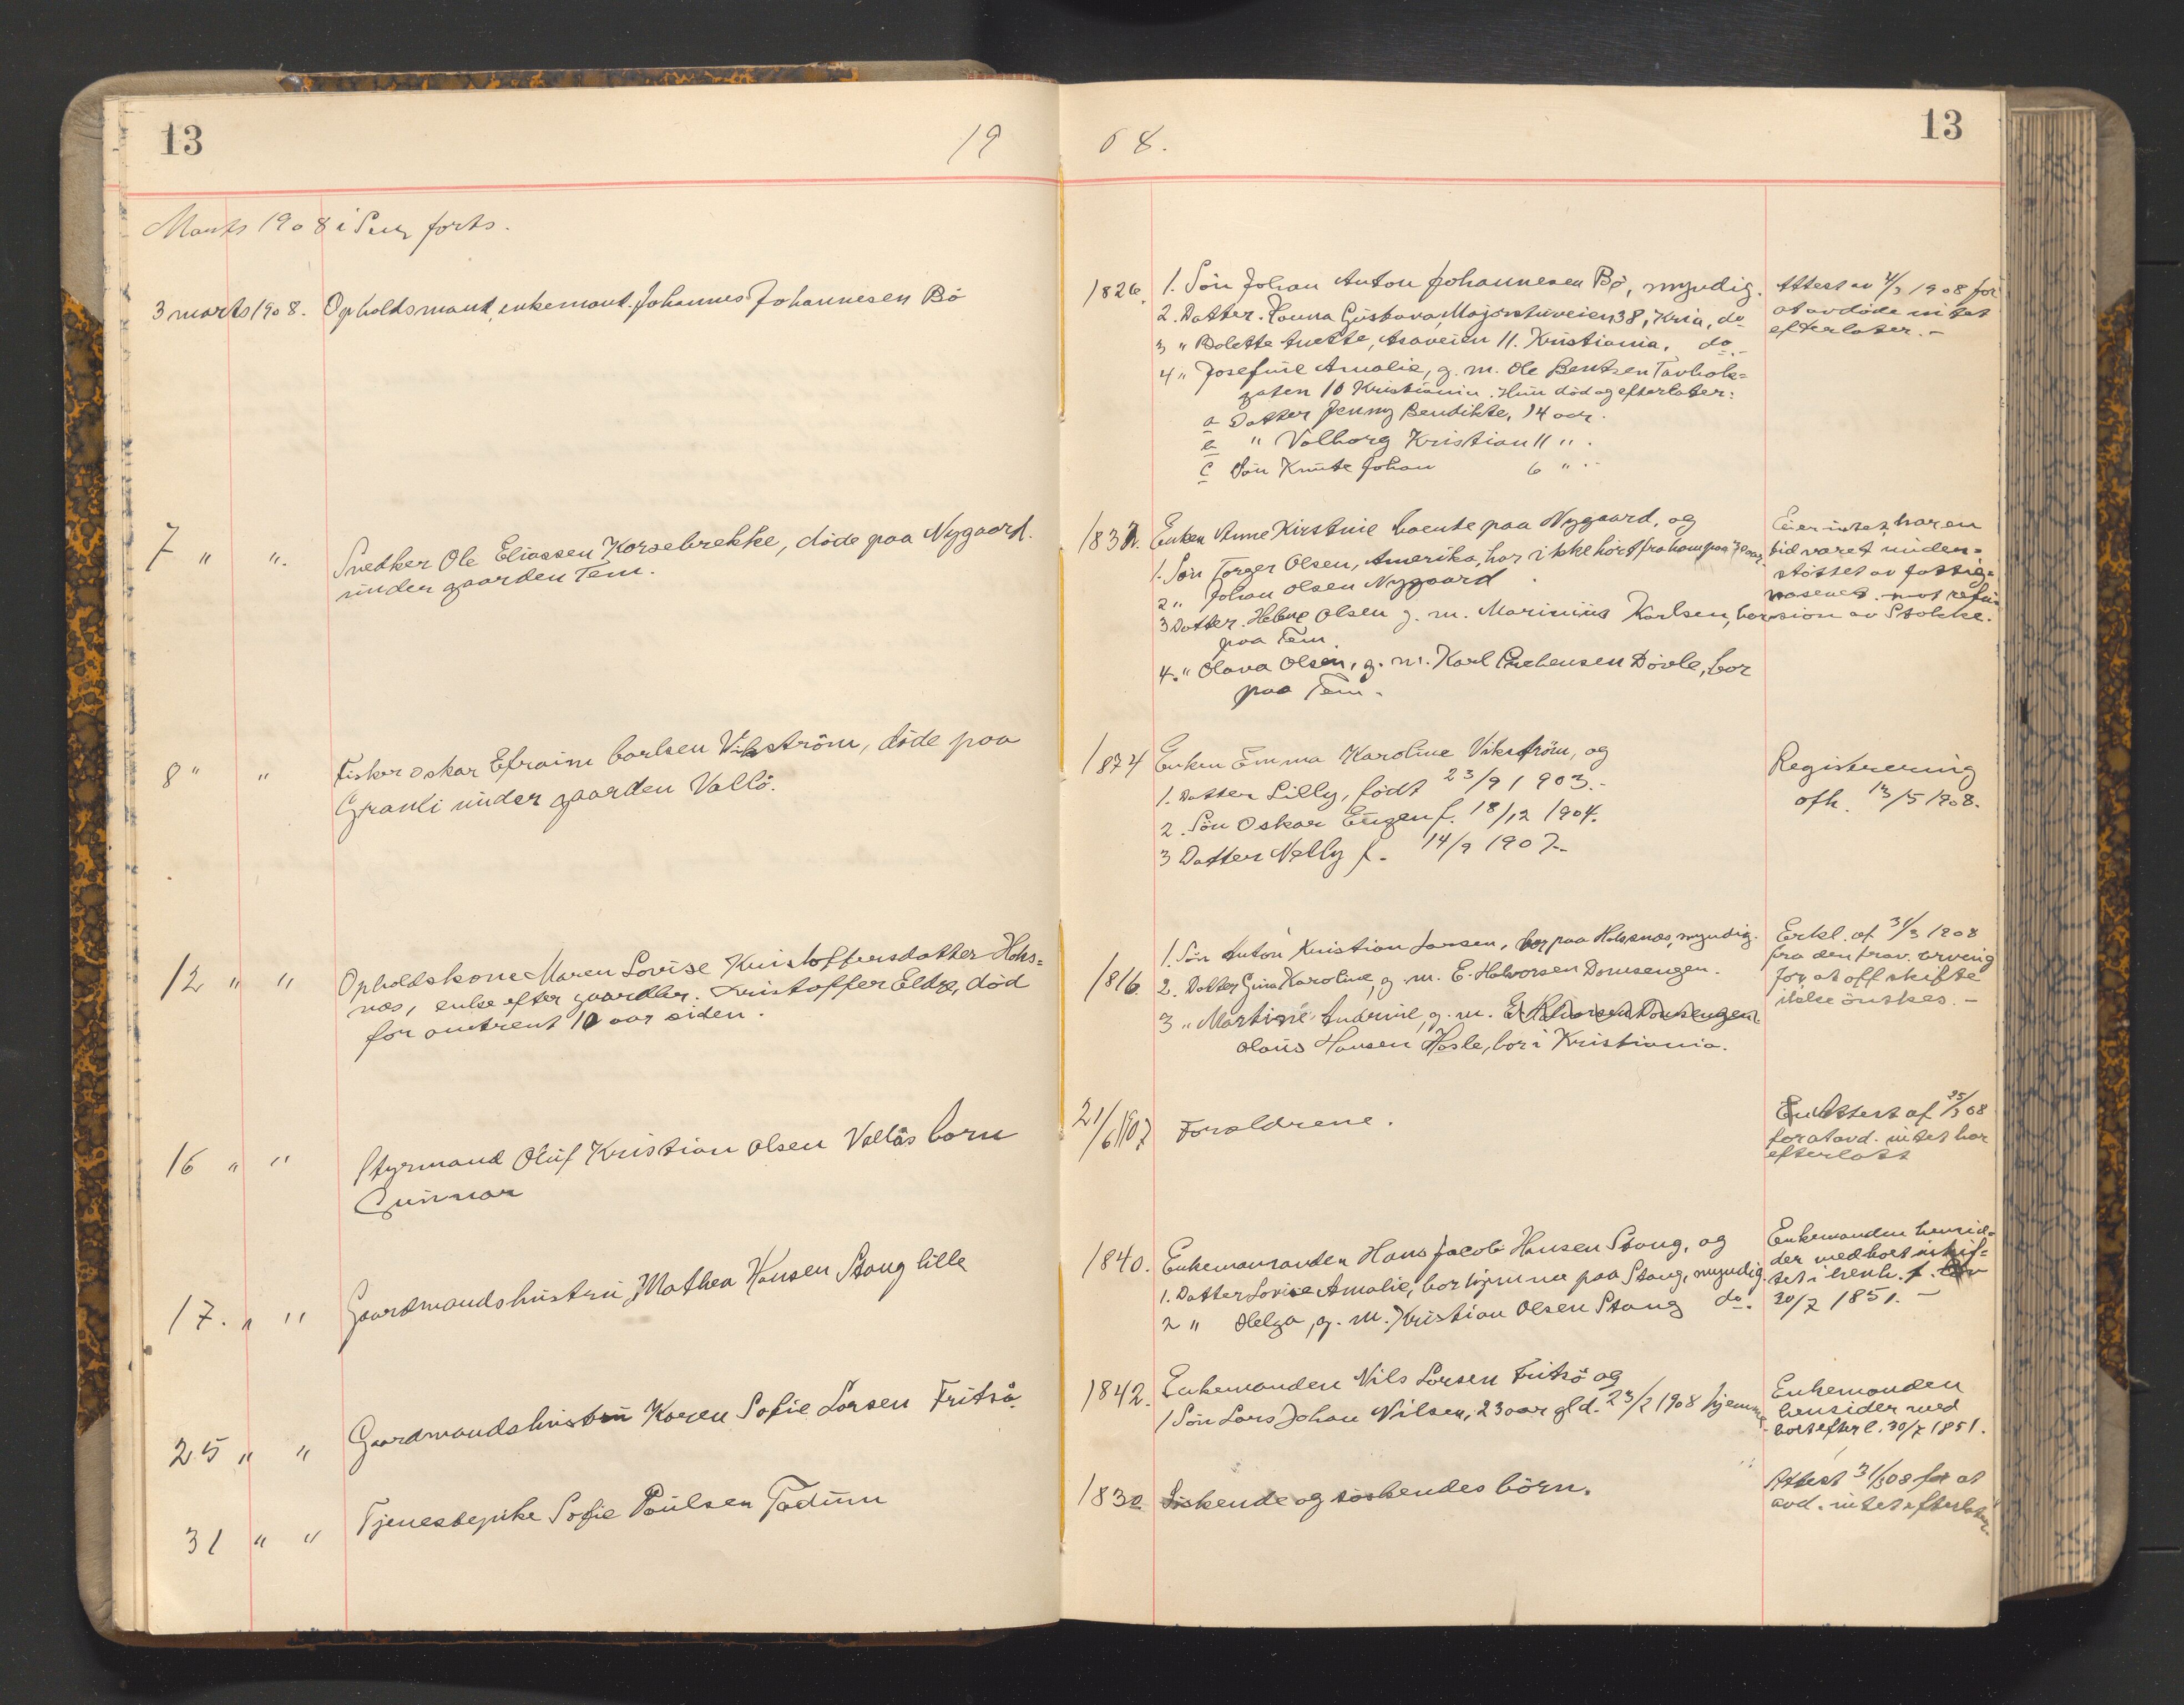 13
19
08.
13
Marts 1908 i Sem forts.
3 marts 1908. Opholdsmand, enkemand Johannes Johannesen Bö
1826. 1. Sön Johan Anton Johannesen Bö, myndig.
2. Datter. Hanna Gustava, Majorstuveien 38, Kria, do
3 " Bolette Anette, Asaveien 11. Kristiania. do.-
4 " Josefine Amalie, g. m. Ole Bentzen
gaten 10 Kristiania. Hun död og efterlater:
a Datter Jenny Bendikte, 14 aar.
b " Valborg Kristian 11 " .
c Sön Knute Johan 6 " .-
Attest av 4/3 1908 for
at avdöde intet
efterlater. -
7 " ". Snedker Ole Eliassen Korsebrekke, döde paa Nygaard.
under gaarden Tem.
Enken Anne Kirstine boende paa Nygaard, og
1. Sön Torger Olsen, Amerika, har ikke hört fra ham paa aar.
2 " Johan Olsen Nygaard
3 Datter. Helene Olsen g. m. Marinius Karlsen, bor
paa Tem
4. " Olava Olsen, g. m. Karl Dövle, bor
paa Tem.
Eier intet, har en
tid været under-
stöttet av fattig-
væsenet mot refu-
sion av Stokke.
8 " " Fisker Oskar Efraim Carlsen Vikström, döde paa
Granli under gaarden Vallö.
1874 Enken Emma Karoline Vikström, og
1. Datter Lilly, födt 23/9 1903.-
2. Sön Oskar Eugen f. 18/12 1904.
3 Datter Nelly f. 14/9 1907.-
Registrering
afh. 13/5 1908.
12 " " Opholdskone Maren Lovise Kristoffersdatter Haks-
næs, enke efter gaardbr. Kristoffer Eldre, död
for omtrent 10 aar siden.
1816. 1. Sön Anton Kristian Larsen, bor paa Haksnæs, myndig.
2. Datter Gina Karoline, g. m. E. Halvorsen Domsengen.
3 " Martine Andrine, g. m. E. Halvorsen Domsengen
Olaus Hansen Hasle, bor i Kristiania.
Erkl. af 31/3 1908
fra den frav. arving
for, at off skifte
ikke önskes. -
16 " " Styrmand Oluf Kristian Olsen Vallös barn
Gunnar
21/6 1907 Forældrene.
Attest af 25/3 08
for at avd. intet har
efterlatt
17. " " Gaardmandshustru Mathea Hansen Stang lille
1840. Enkemanden Hans Jacob Hansen Stang, og
1. Datter Lovise Amalie, bor hjemme paa Stang, myndig.
2 " Helga, g. m. Kristian Olsen Stang do.
Enkemanden hensid-
der med boet uskif-
tet i henh. t. lov
30/7 1851. -
25 " " Gaardmandshustru Karen Sofie Larsen Fritsö.
1842. Enkemanden Nils Larsen Fritsö og
1 Sön Lars Johan Nilsen, 23 aar gl d. 23/2 1908 hjemme
Enkemanden
hensider med
boet efter l. 30/7 1851.
31 " " Tjenestepike Sofie Paulsen Tadum
1830 Söskende og söskendes börn.
Attest 31/3 08 for at
avd. intet efterlater.